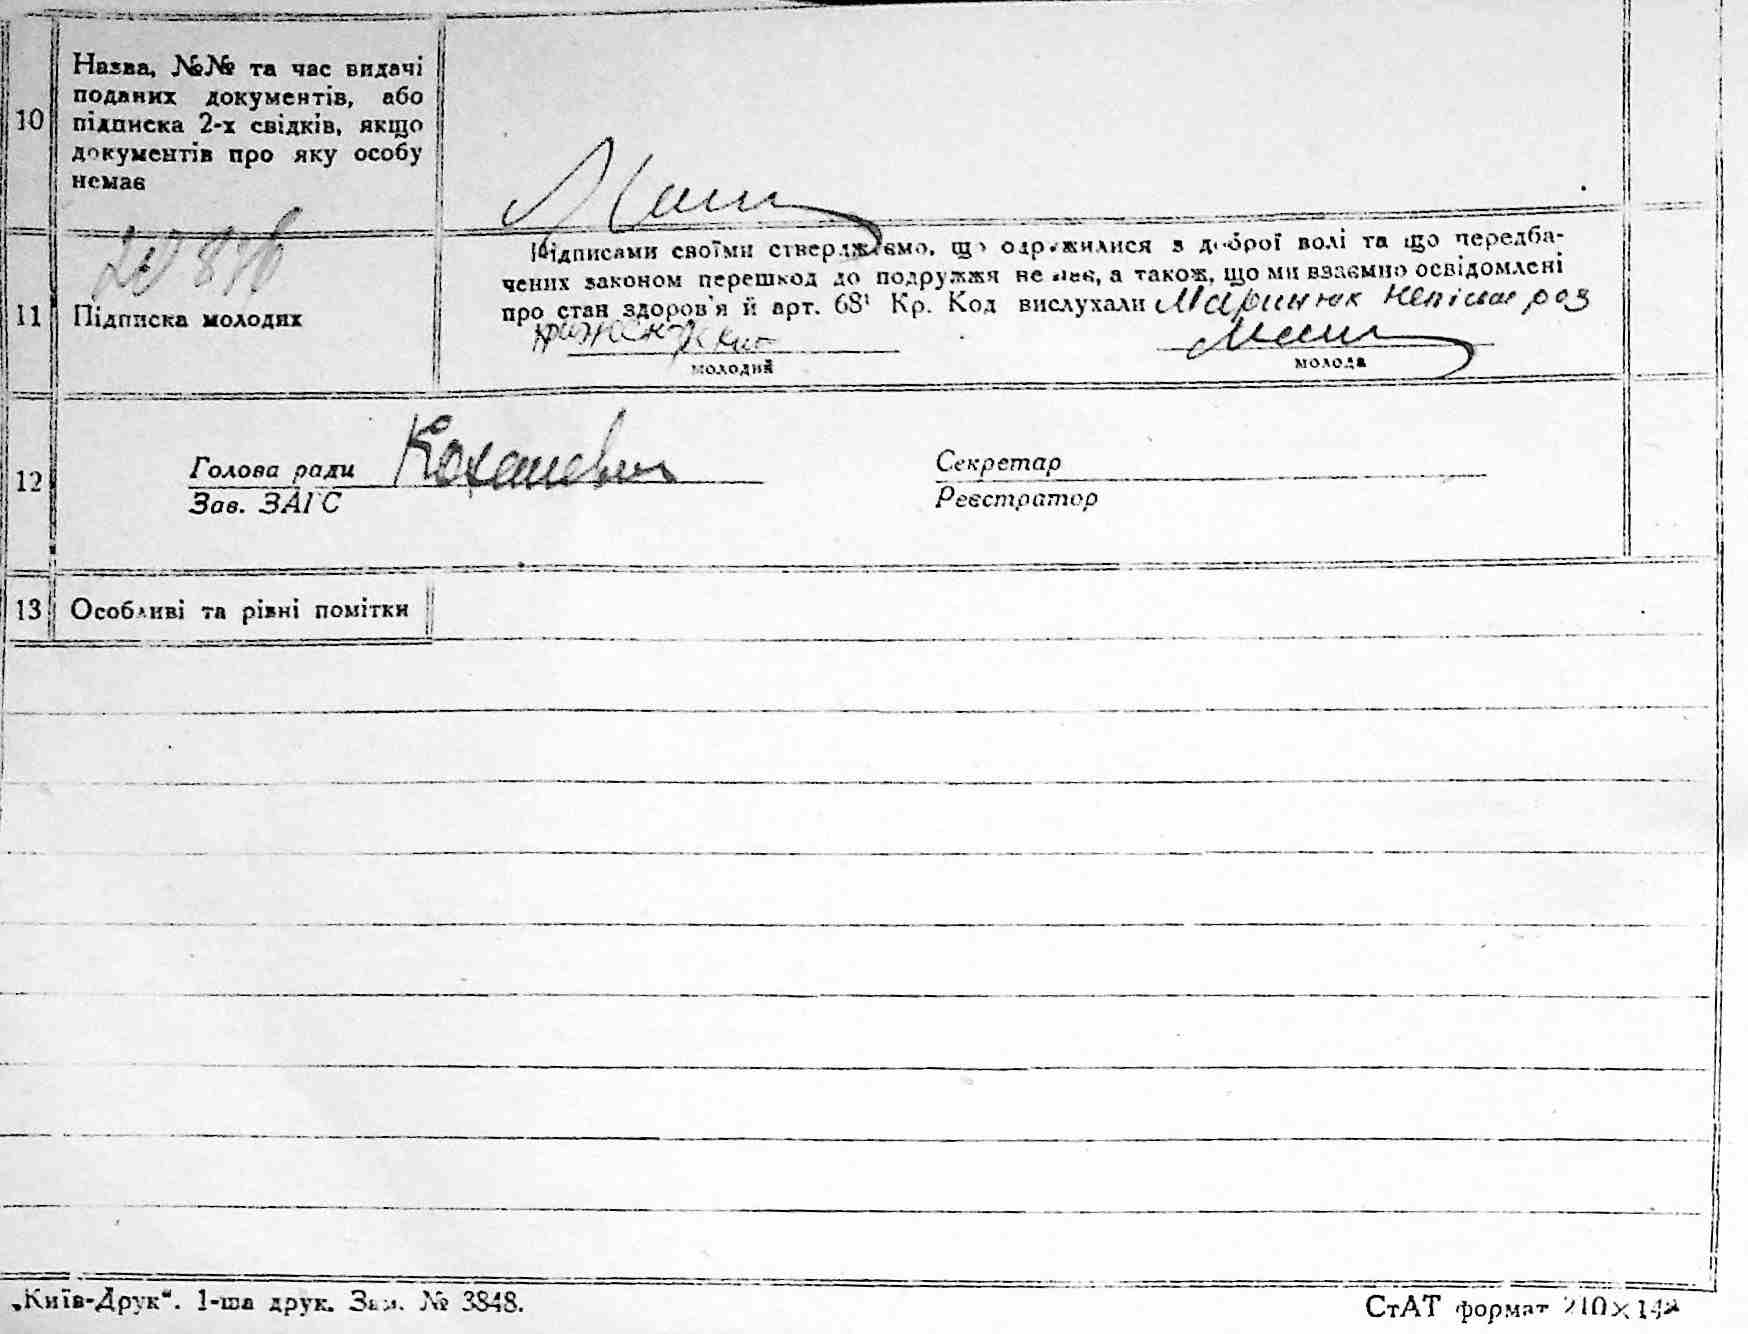 10
Назва, №№ та час видачі
поданих документів, або
підписка 2-х свідків, якщо
документів про яку особу
немає
11
Підписка молодих
Підписами своїми стверджуємо, що одружилися з доброї волі та що передба-
чених законом перешкод до подружжя не має, а також, що ми взаємно освідомлені
про стан здоров'я й арт. 68¹ Кр. Код вислухали Маринюк
молодий
молода
12
Голова ради
Зав. ЗАГС
Секретар
Реєстратор
13
Особливі та рівні помітки
„Київ-Друк“. 1-ша друк. Зам. № 3848.
СтАТ формат 210×148